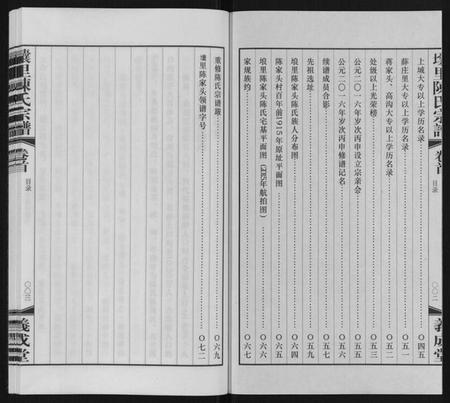 埌里陈氏宗谱
卷首
目录
〇〇二
義成堂
上城大专以上学历名录 〇四五
薛庄里大专以上学历名录 〇五一
蒋家头、高沟大专以上学历名录 〇五二
处级以上光荣榜 〇五三
公元二〇一六年岁次丙申设立宗亲会 〇五五
公元二〇一六年岁次丙申修谱记名 〇五六
续谱成员合影 〇五七
先祖选址 〇五九
埌里陈家头陈氏族人分布图 〇六四
陈家头村百年前1915年原址平面图 〇六五
埌里陈家头陈氏宅基平面图(2015年航拍图) 〇六六
家规族约 〇六七
重修陈氏宗谱跋 〇六九
埌里陈家头领谱字号 〇七二
埌里陳氏宗譜
卷首
目录
〇〇三
義成堂